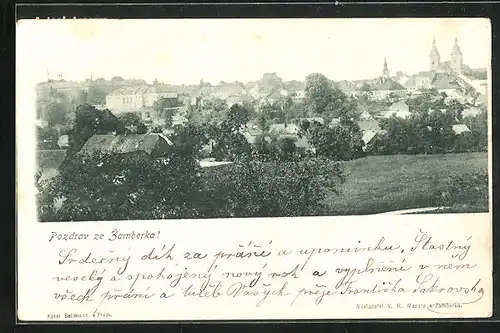 Pozdrav ze Žamberka!
Srdečný dík za přání a upomínku, Šťastný
veselý a spokojený nový rok a vyplnění v něm
všech přání a tužeb Vašých přeje Františka
Karel Bellmann, Praha.
Nakladatel V. R. v Žamberku.